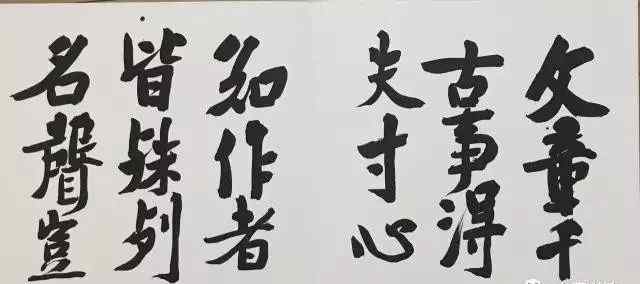 文章千
古事得
失寸心
知作者
皆殊列
名聲豈